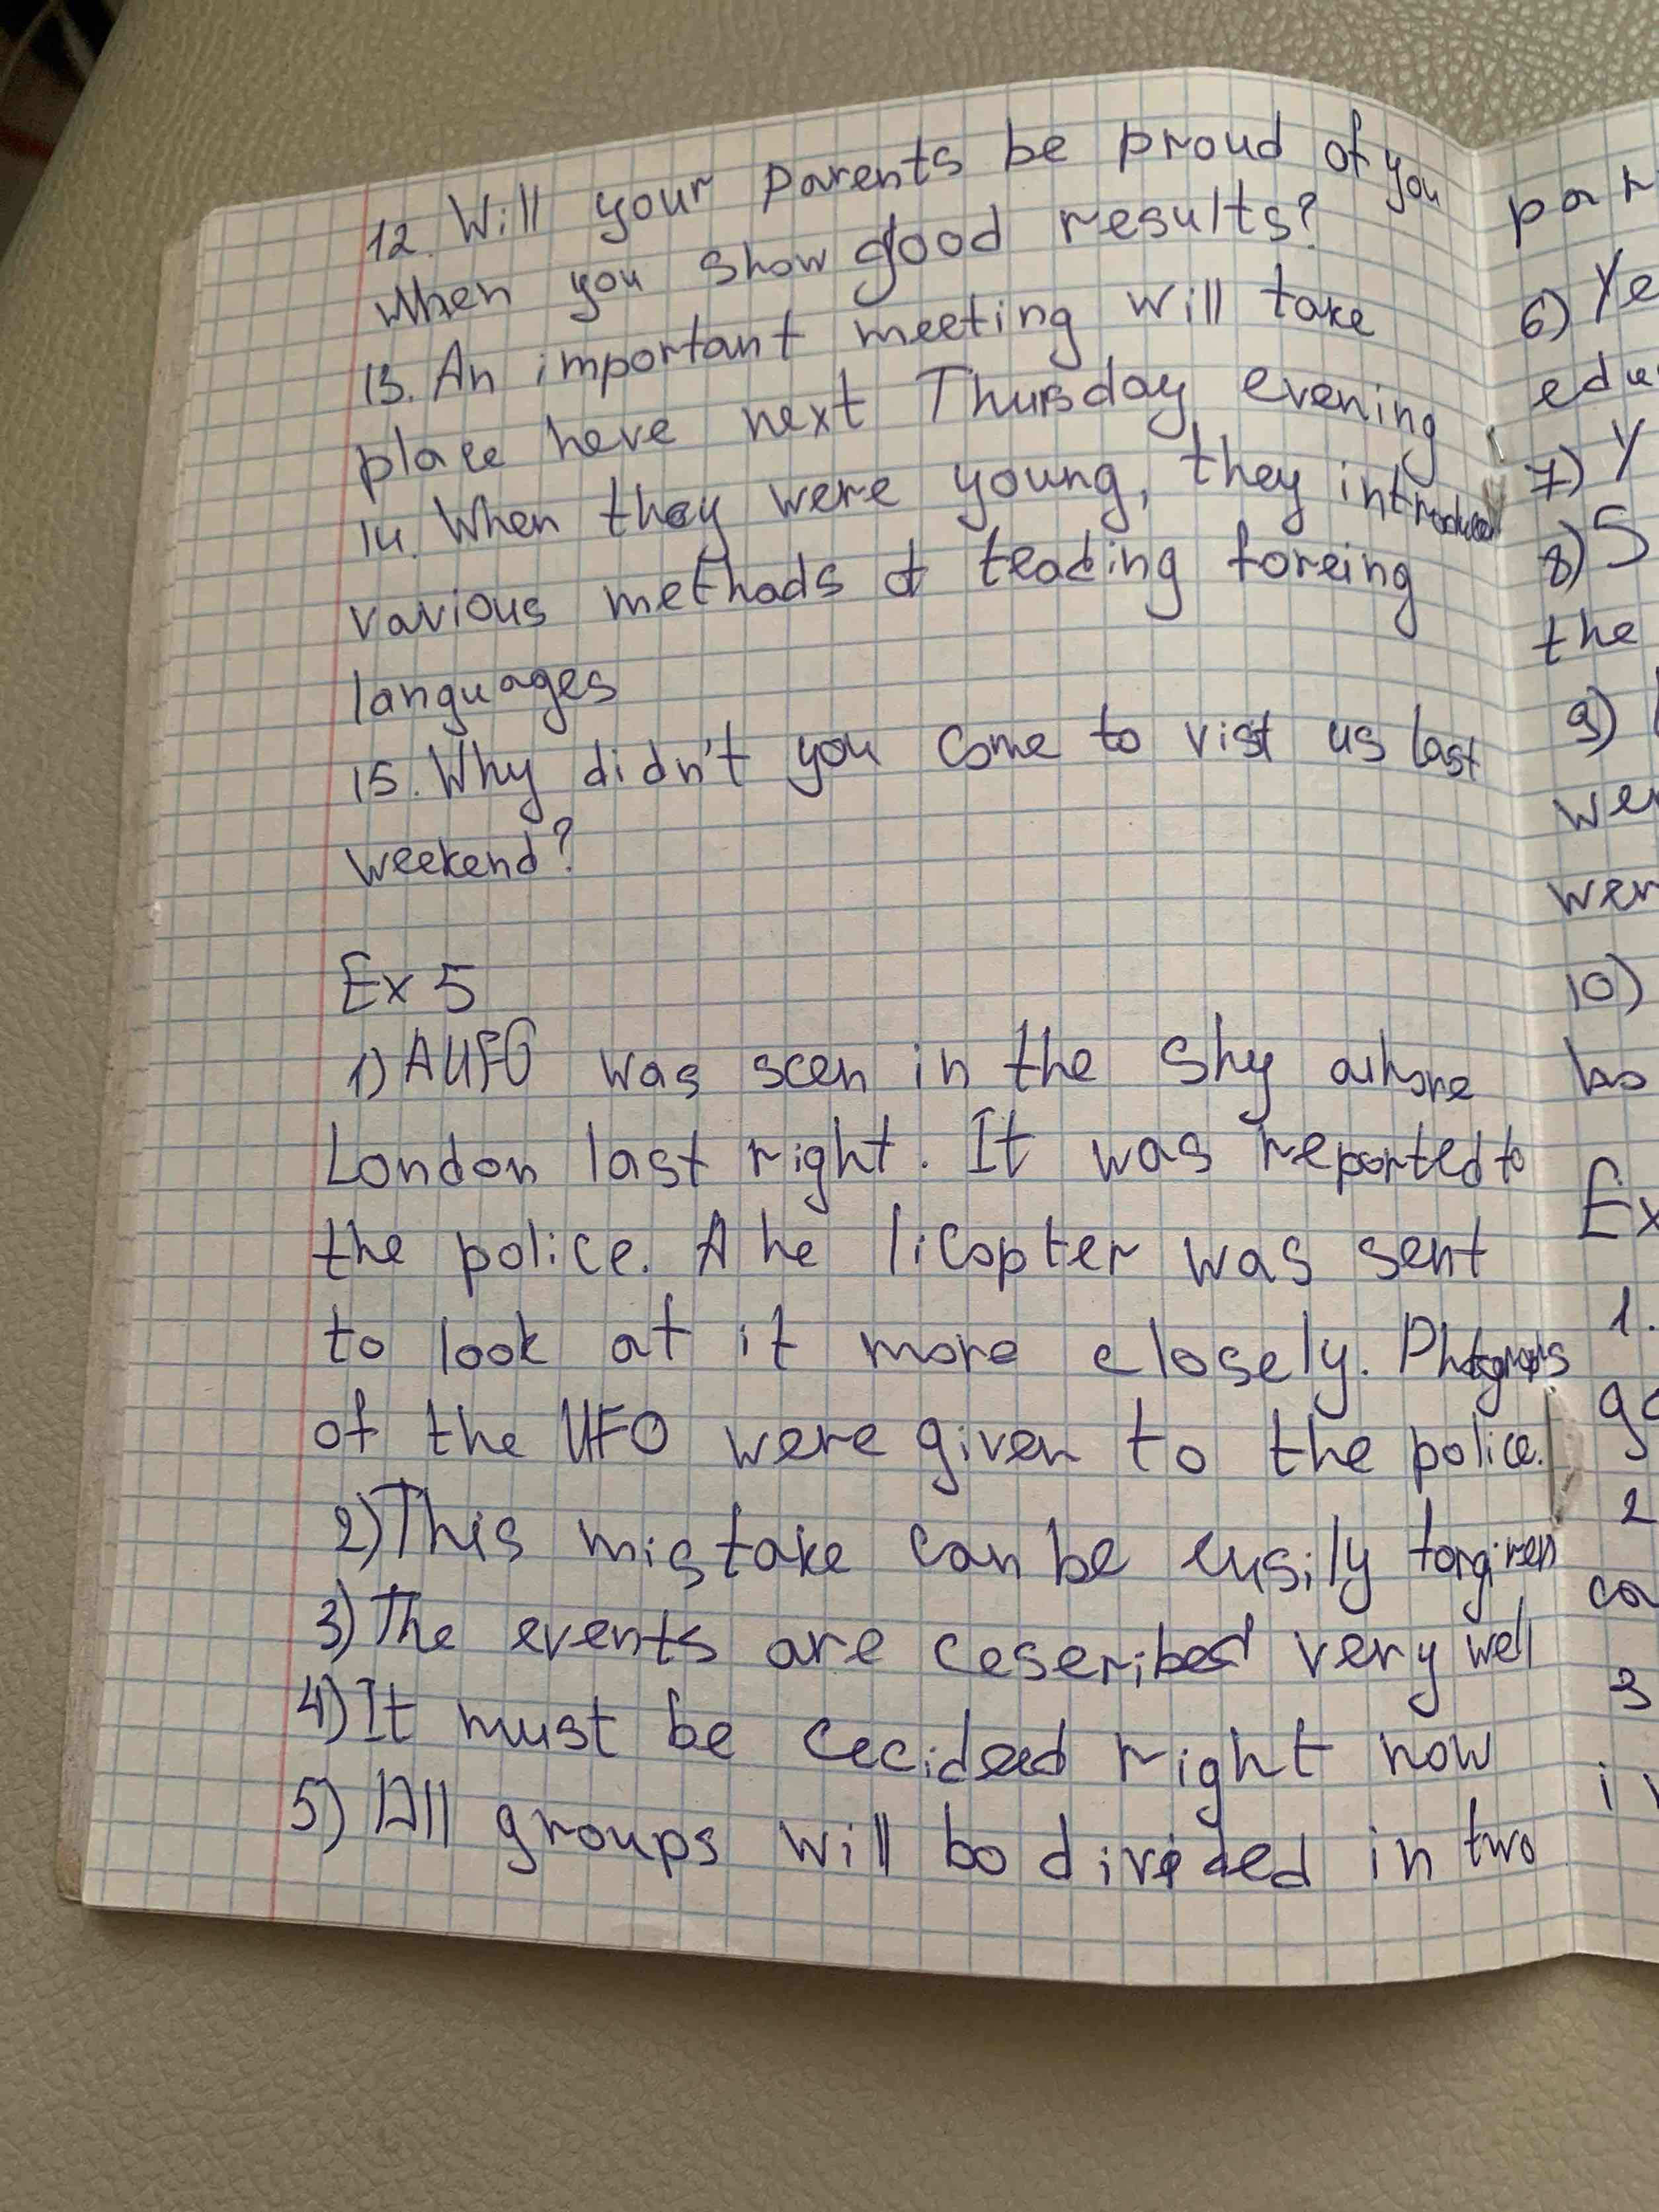 12. Will your parents be proud of you
when you show good results?
13. An important meeting will take
place here next Thursday evening
14. When they were young, they introduced
various methods of teaching foreing
languages
15. Why didn't you come to visit us last
weekend?
Ex 5
1) A UFO was seen in the shy
London last right. It was reported to
the police. A he licopter was sent
to look at it more closely. Photographs
of the UFO were given to the police.
2) This mistake can be eusily forgiven
3) The events are ceseribed very well
4) It must be cecided right now
5) All groups will bo divided in two
par
6) Ye
edu
7) Y
8) S
the
9)
wer
wer
10)
bo
Ex
1.
go
2
ca
3
i